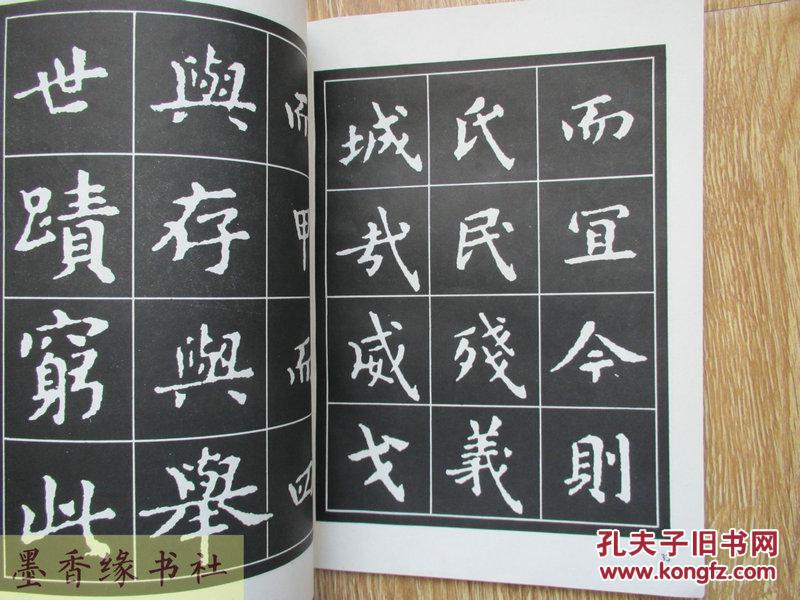 而宜今則
氏民殘義
城哉威戈
與存與舉
世蹟窮此
墨香缘书社
孔夫子旧书网
www.kongfz.com